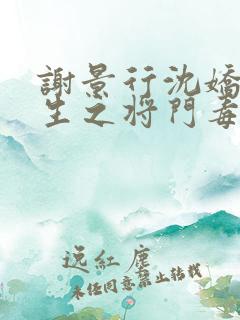 謝景行沈嬌
生之將門毒
逸紅塵
未经同意禁止转载